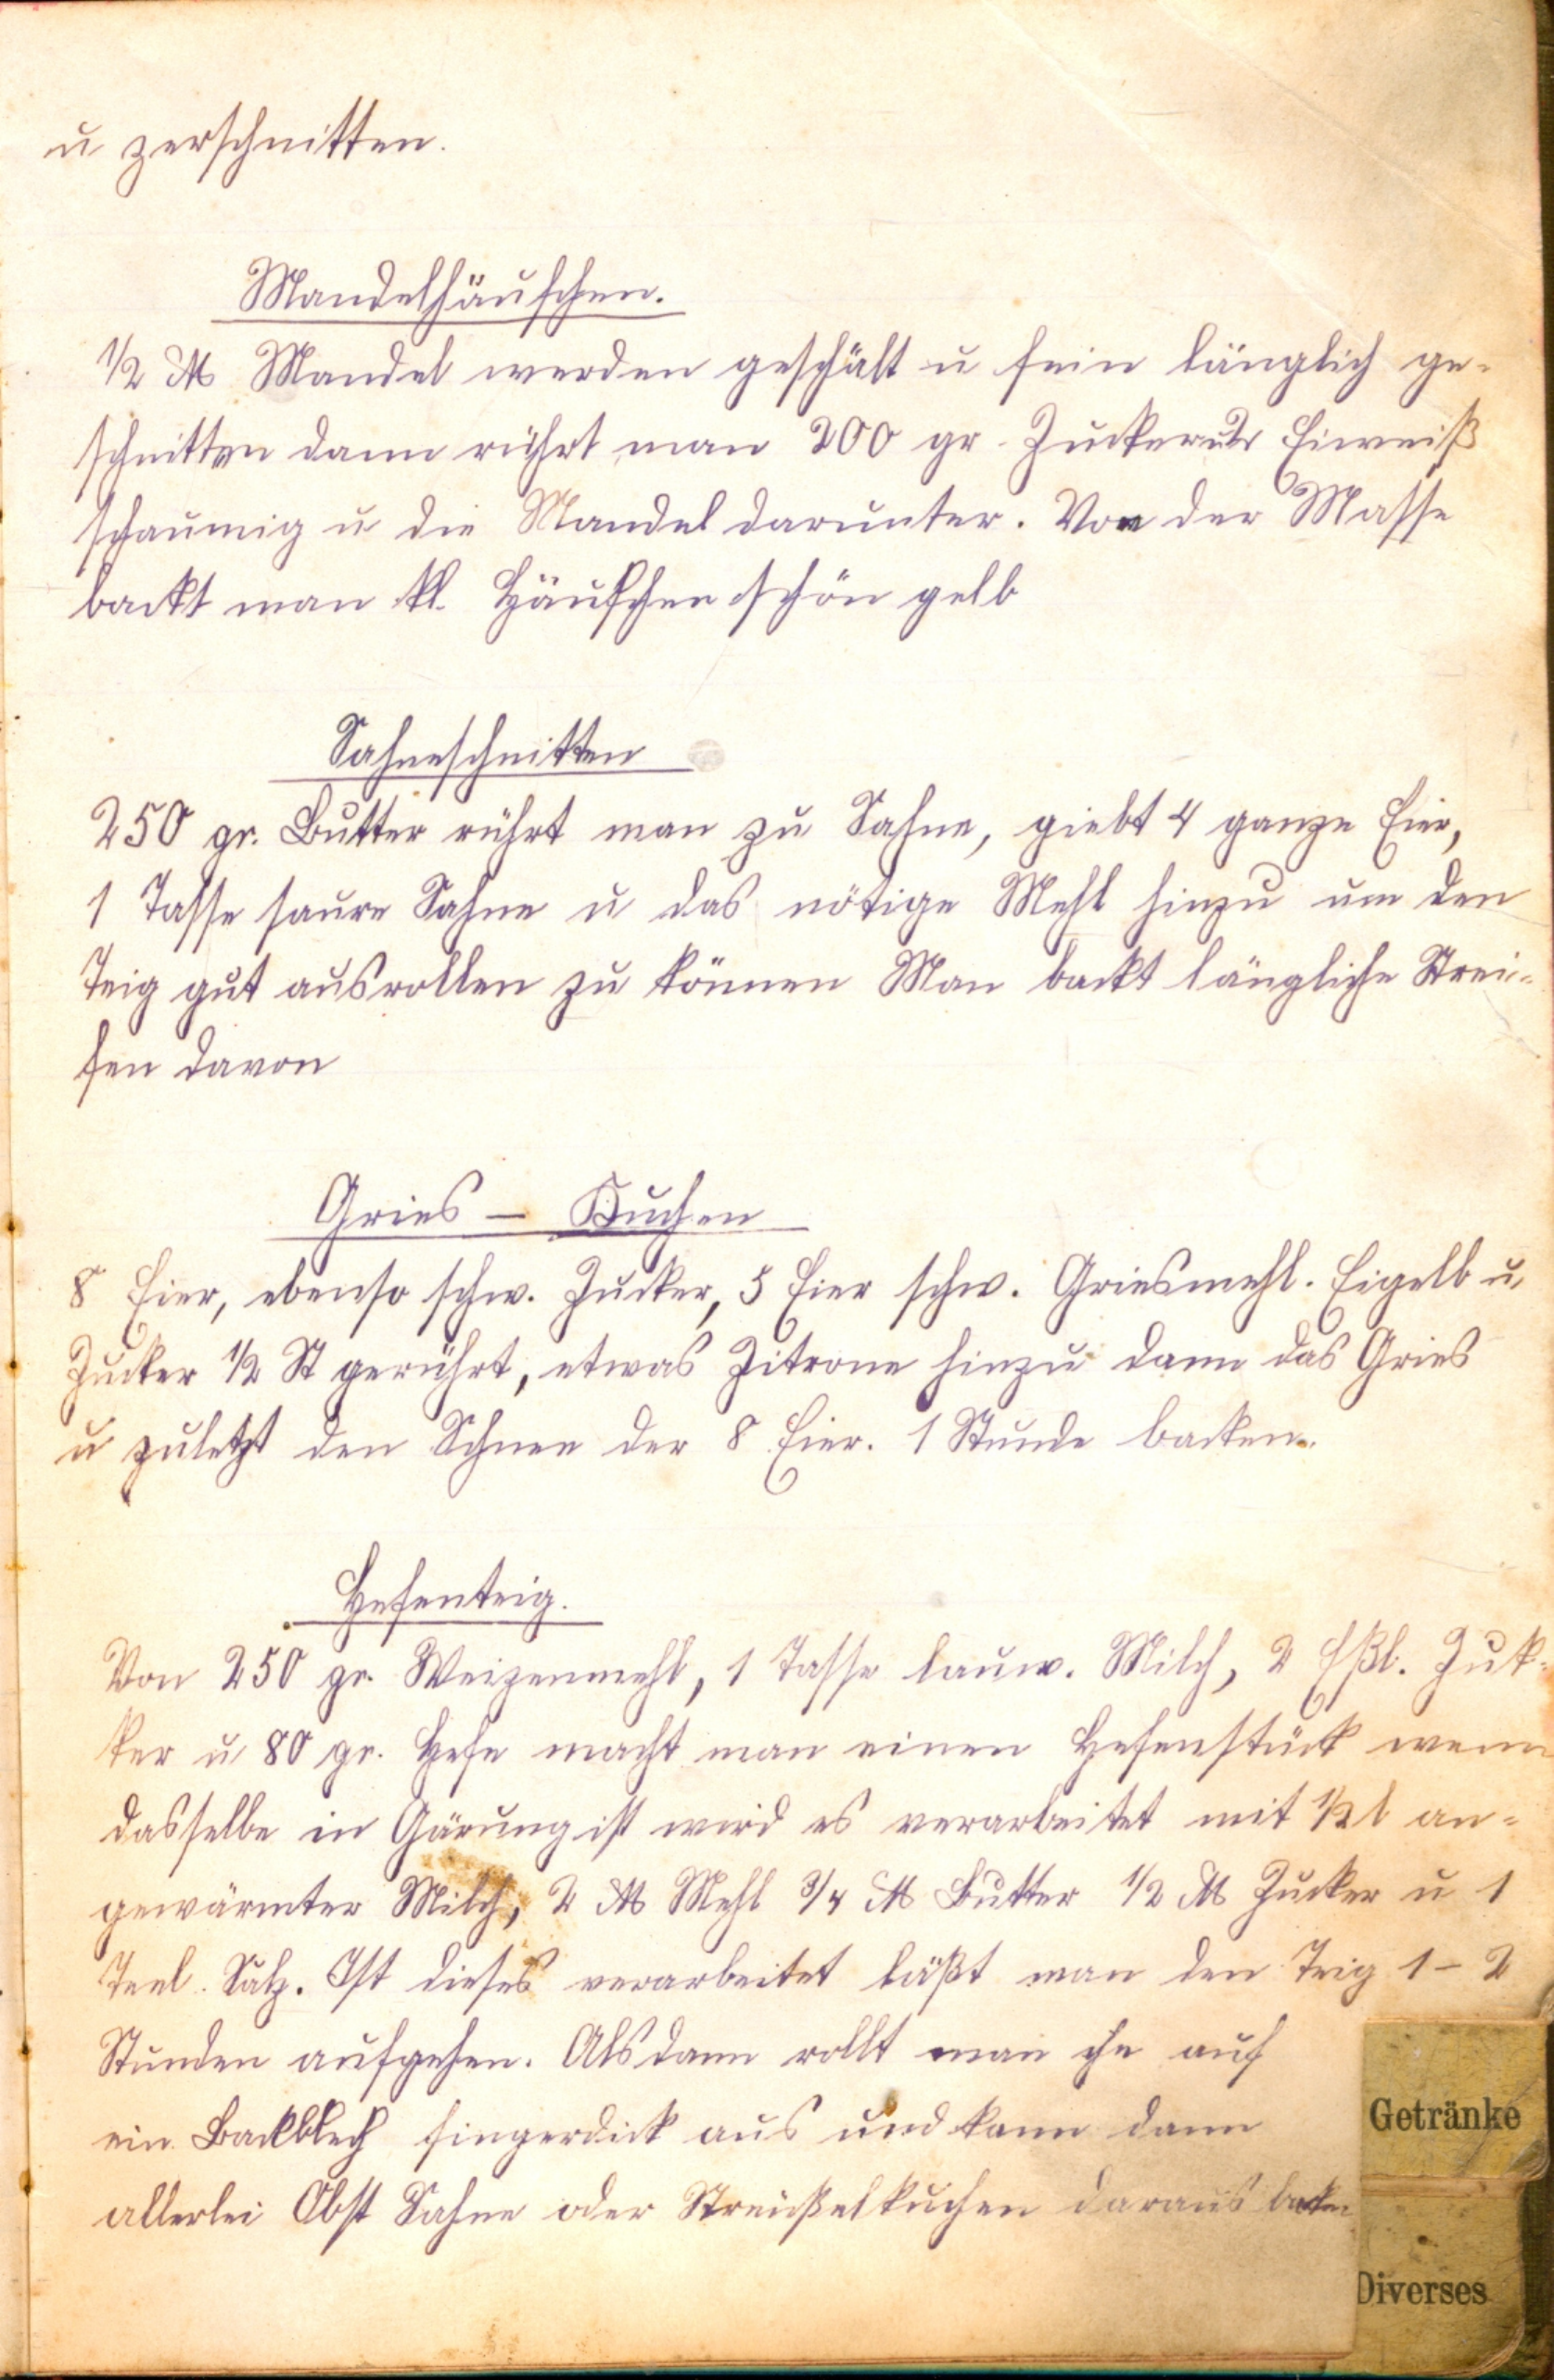 u zerschnitten.
Mandelhäufchen.
½ ℔ Mandel werden geschält u fein länglich ge-
schnitten dann rührt man 200 gr. Zucker u Eiweiß
schaumig u die Mandel darunter. Von der Masse
backt man kl. Häufchen schön gelb
Sahneschnitten
250 gr. Butter rührt man zu Sahne, giebt 4 ganze Eier,
1 Tasse saure Sahne u das nötige Mehl hinzu um den
Teig gut ausrollen zu können Man backt längliche Strei-
fen davon
Gries - Kuchen
8 Eier, ebenso schw. Zucker, 5 Eier schw. Griesmehl. Eigelb u.
Zucker ½ St gerührt, etwas Zitrone hinzu dann das Gries
u zuletzt den Schnee der 8 Eier. 1 Stunde backen.
Hefenteig.
Von 250 gr. Weizenmehl, 1 Tasse lauw. Milch, 2 Eßl. Zuk-
ker u 80 gr. Hefe macht man einen Hefenstück wenn
dasselbe in Gärung ist wird es verarbeitet mit ½ l an-
gewärmter Milch, 2 ℔ Mehl ¾ ℔ Butter ½ ℔ Zucker u 1
Teel. Salz. Ist dieses verarbeitet läßt man den Teig 1-2
Stunden aufgehen. Alsdann rollt man ihn auf
ein Backblech fingerdick aus und kann dann
allerlei Obst Sahne oder Streußelkuchen daraus backen
Getränke
Diverses